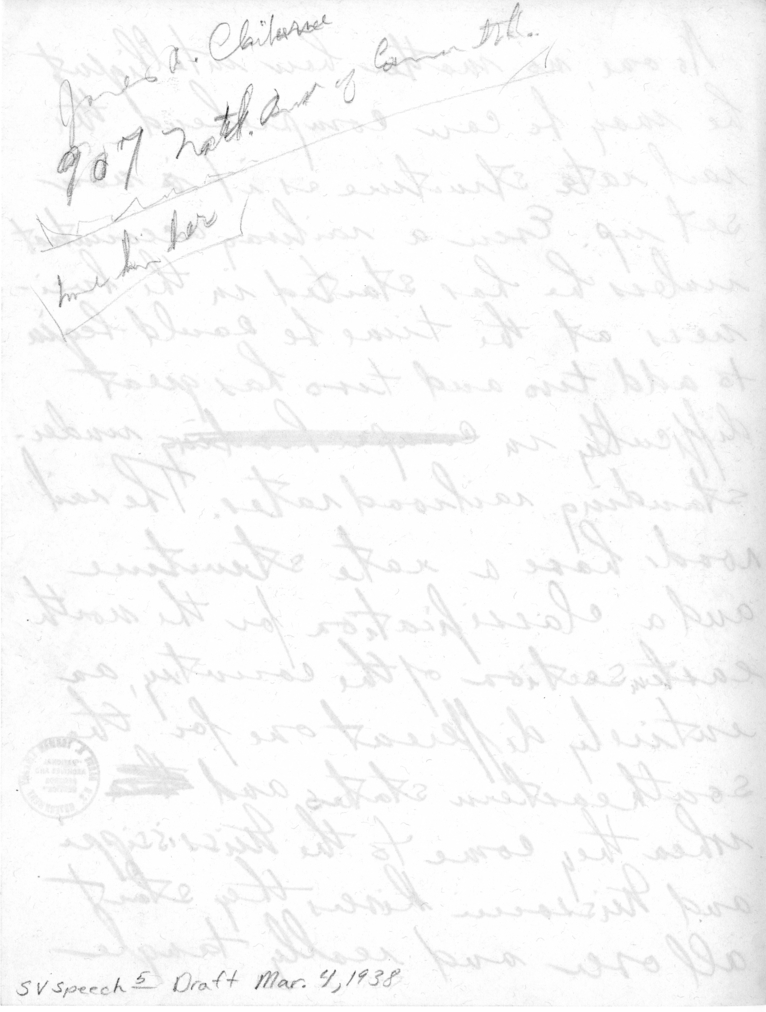 James A.
907 North. Bend of
him her
No one, no matter how intelligent
he may be can comprehend the
rail rate structure as it is now
set up. Even a railway accountant
unless he has started in the busi-
ness at the time he could
to add two and two has great
difficulty in under-
standing railroad rates. The rail
road have a rate structure
and a classification for the north
eastern section of the country, an
entirely different one for the
southeastern states and
when they come to the Mississippi
and Missouri Rivers they start
all over and really tangle
SV Speech 5 Draft Mar. 4, 1938